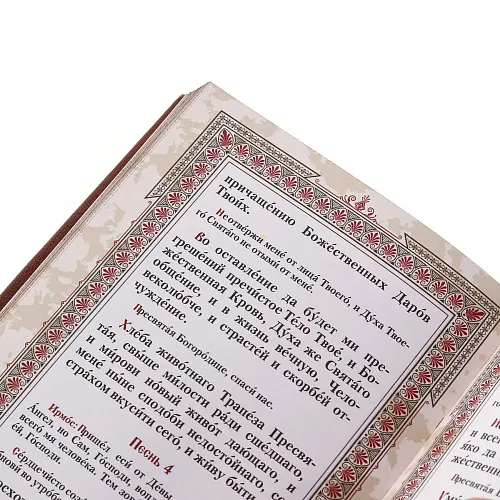 причаще́нию Боже́ственных Даро́в
Твои́х.
Неотве́ржи мене́ от лица́ Твоего́, и Ду́ха Твое-
го́ Свята́го не отыми́ от мене́.
Во оставле́ние да бу́дет ми пре-
греше́ний пречи́стое Те́ло Твое́, и Бо-
же́ственная Кровь, Ду́ха же Свята́го
обще́ние, и в жизнь ве́чную, Чело-
веколю́бче, и страсте́й и скорбе́й от-
чужде́ние.
Пресвята́я Богоро́дице, спаси́ нас.
Хле́ба живо́тнаго Трапе́за Пресвя-
та́я, свы́ше ми́лости ра́ди сше́дшаго,
и ми́рови но́вый живо́т даю́щаго, и
мене́ ны́не сподо́би недосто́йнаго, со
стра́хом вкуси́ти сего́, и жи́ву бы́ти
Песнь 4
Ирмо́с: Прише́л еси́ от Де́вы,
А́нгел, но Сам, Го́споди, вопло́
всего́ мя челове́ка. Тем зов
е́й, Го́споди.
Се́рдце чи́сто сози́
нови́ во утро́бе
и все
яко да
же́ствен
Пресвята́я